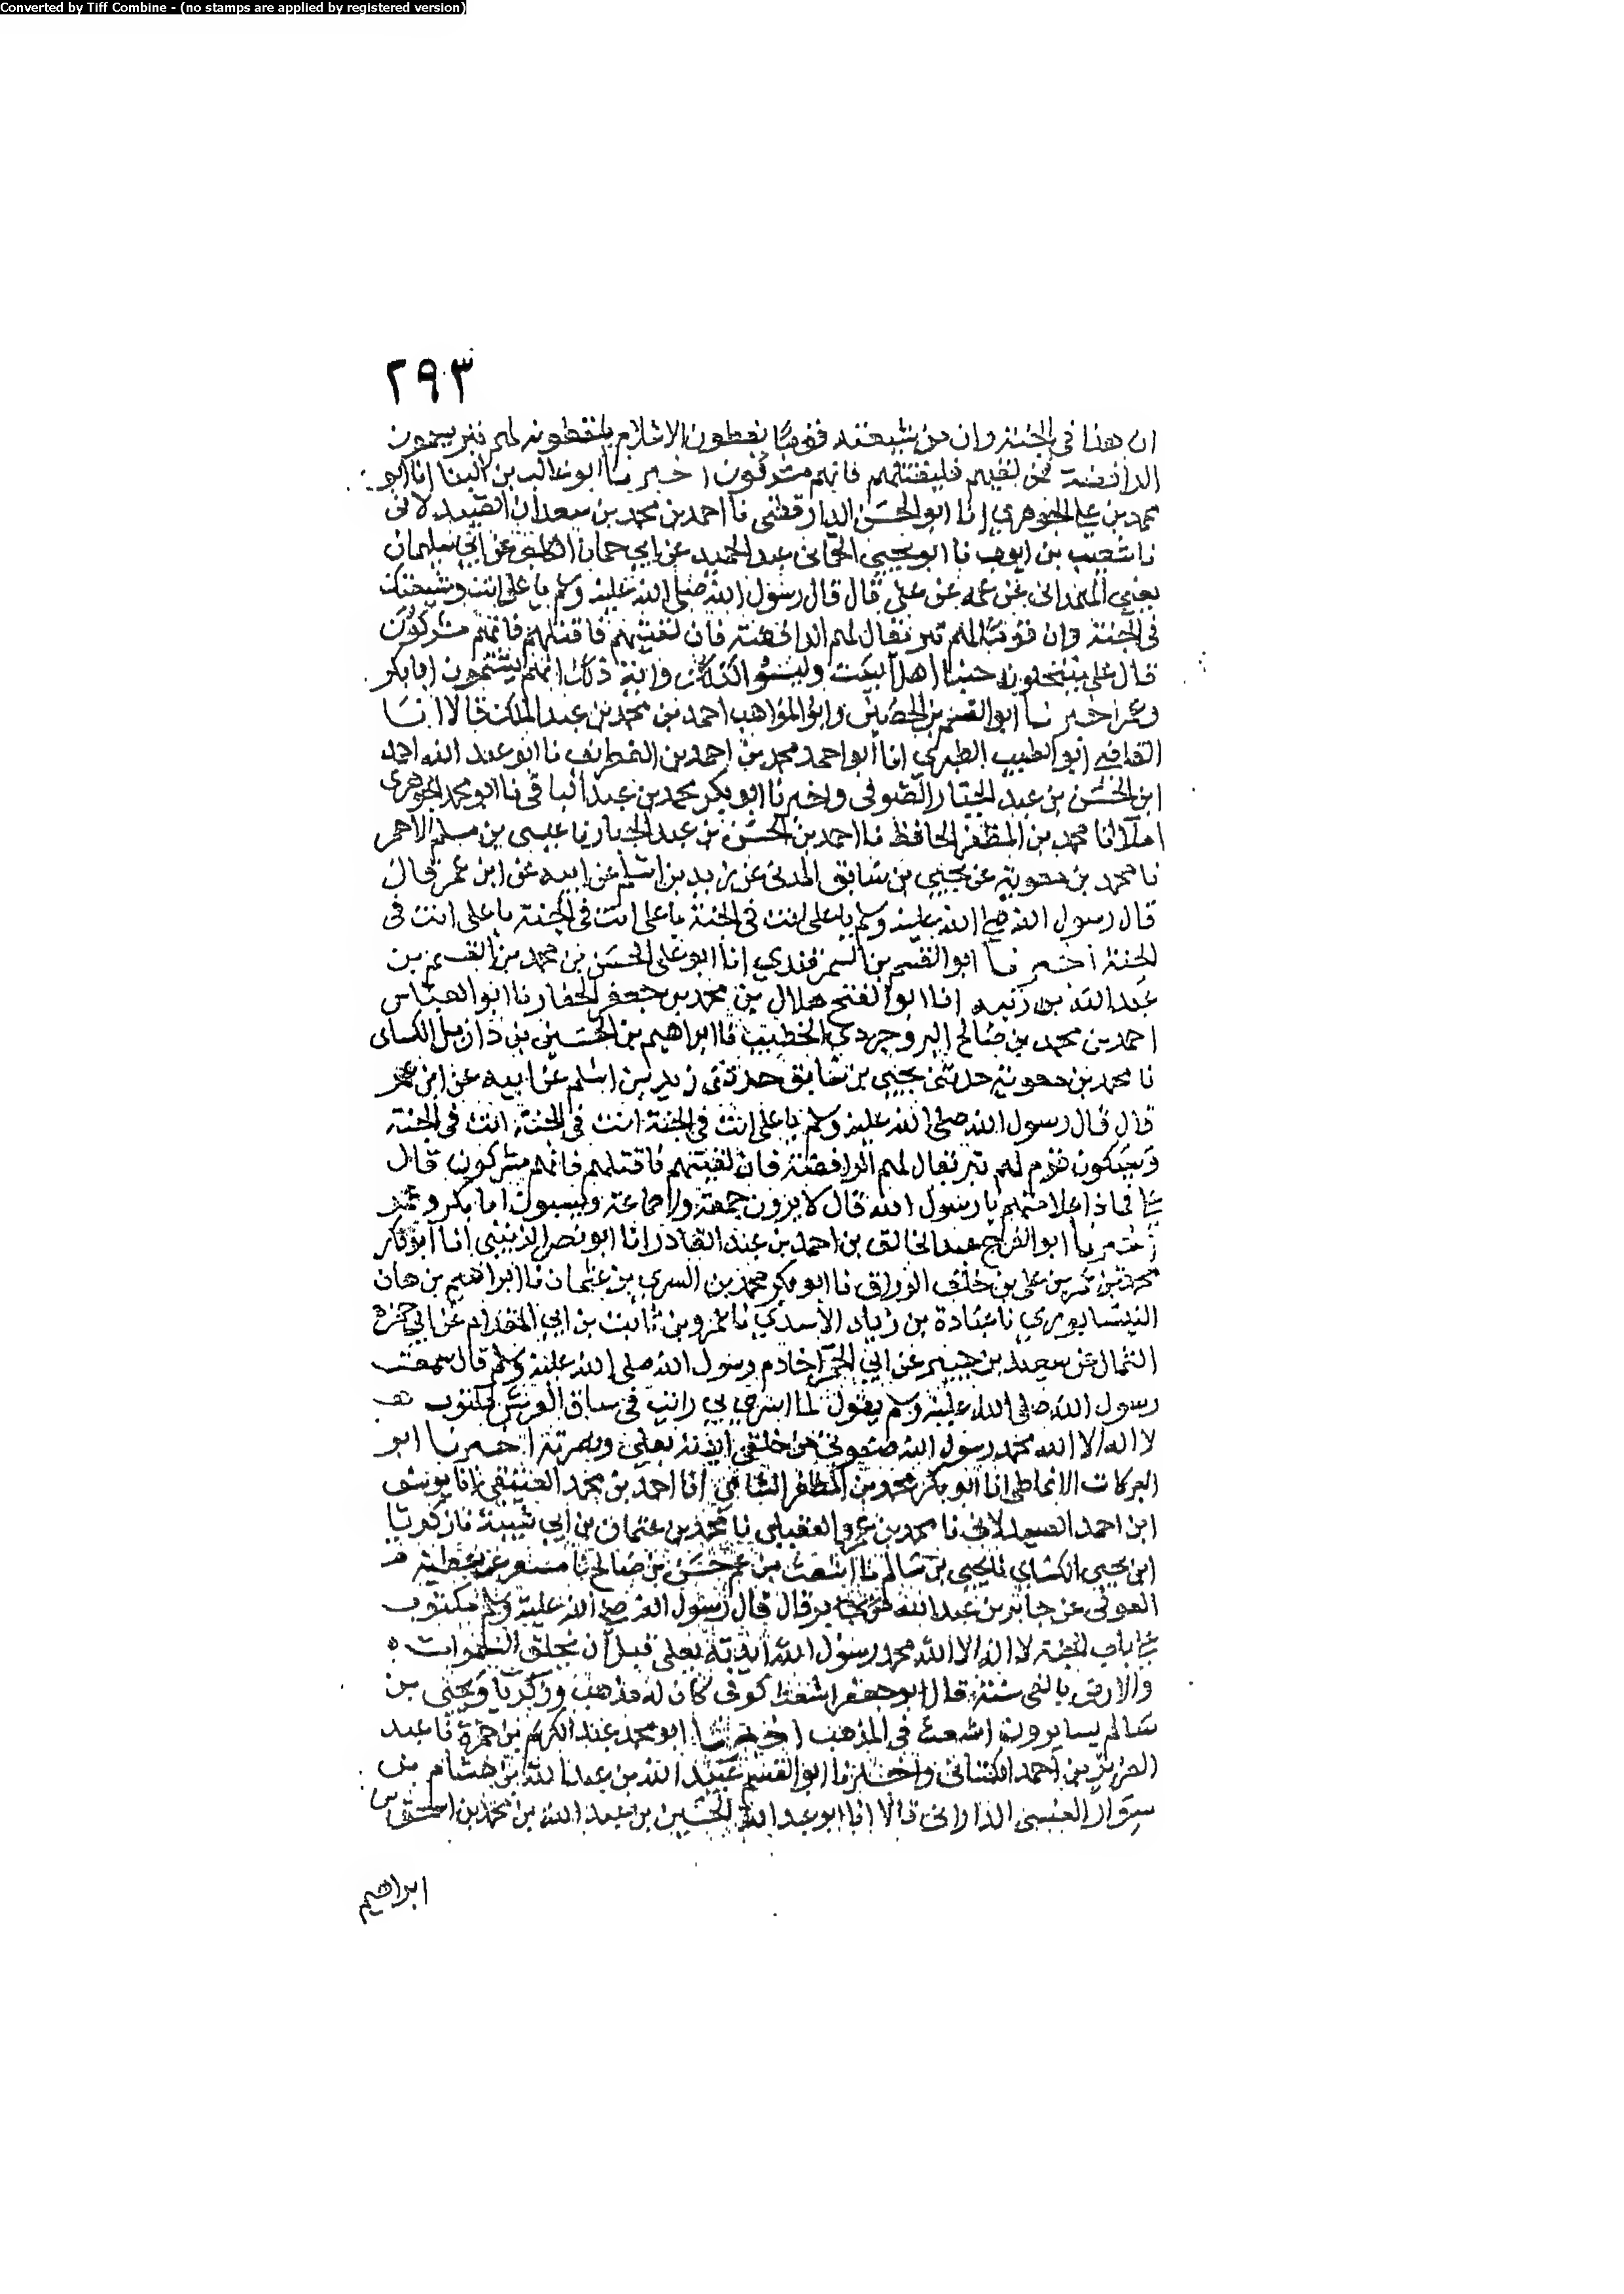 Converted by Tiff Combine - (no stamps are applied by registered version)
٢٩٣
ان هذا في الجنة وان من شيعته قوما يعطون الاسلام يلفظونه لهم نبز يسمون
الرافضة من لقيهم فليقتلهم فانهم مشركون اخبرنا ابو غالب بن البنا انا ابو
محمد بن علي الجوهري انا ابو الحسن الدارقطني نا احمد بن محمد بن سعدان الصيدلاني
نا شعيب بن ايوب نا ابو يحيى الحماني عبد الحميد عن ابي جناب الكلبي عن ابي سليمان
يعني الهمداني عن عمه عن علي قال قال رسول الله صلى الله عليه وسلم يا علي انت وشيعتك
في الجنة وان قوما لهم نبز يقال لهم الرافضة فان لقيتهم فاقتلهم فانهم مشركون
قال علي ينتحلون حبنا اهل البيت وليسوا كذلك واية ذلك انهم يشتمون ابا بكر
وعمر اخبرنا ابو القسم بن الحصين وابو المواهب احمد بن محمد بن عبد الملك قالا انا
القاضي ابو الطيب الطبري انا ابو احمد محمد بن احمد بن الغطريف نا ابو عبد الله احمد
ابن الحسن بن عبد الجبار الصوفي واخبرنا ابو بكر محمد بن عبد الباقي نا ابو محمد الجوهري
املا انا محمد بن المظفر الحافظ نا احمد بن الحسن بن عبد الجبار نا عيسى بن مسلم الاحمر
نا محمد بن معوية عن يحيى بن سابق المدني عن زيد بن اسلم عن ابيه عن ابن عمر قال
قال رسول الله صلى الله عليه وسلم يا علي انت في الجنة يا علي انت في الجنة يا علي انت في
الجنة اخبرنا ابو القسم بن السمرقندي انا ابو علي الحسن بن محمد بن القسم بن
عبد الله بن زنيه انا ابو الفتح هلال بن محمد بن جعفر الحفار نا ابو العباس
احمد بن محمد بن صالح البروجردي الخطيب نا ابراهيم بن الحسين بن دازيل الكسائي
نا محمد بن معوية حدثني يحيى بن سابق حدثني زيد بن اسلم عن ابيه عن ابن عمر
قال قال رسول الله صلى الله عليه وسلم يا علي انت في الجنة انت في الجنة انت في الجنة
وسيكون قوم لهم نبز يقال لهم الرافضة فان لقيتهم فاقتلهم فانهم مشركون قال
علي فماذا علامتهم يا رسول الله قال لا يرون جمعة ولا جماعة ويسبون ابا بكر وعمر
اخبرنا ابو الفرج عبد الخالق بن احمد بن عبد القادر انا ابو نصر الزينبي انا ابو بكر
محمد بن عمر بن علي بن خلف الوراق نا ابو بكر محمد بن السري بن عثمان نا ابراهيم بن هان
النيسابوري نا عبادة بن زياد الاسدي نا عمرو بن ثابت بن ابي المقدام عن ابي حمزة
الثمالي عن سعيد بن جبير عن ابي الحمرا خادم رسول الله صلى الله عليه وسلم قال سمعت
رسول الله صلى الله عليه وسلم يقول لما اسري بي رايت في ساق العرش مكتوب
لا اله الا الله محمد رسول الله صفوتي من خلقي ايدته بعلي ونصرته اخبرنا ابو
البركات الانماطي انا ابو بكر محمد بن المظفر الشامي انا احمد بن محمد العتيقي انا يوسف
ابن احمد الصيدلاني نا محمد بن عمرو العقيلي نا محمد بن عثمان بن ابي شيبة نا زكريا
ابن يحيى الكسائي نا يحيى بن سالم نا اشعث بن عم حسن بن صالح نا مسعر عن عطية
العوفي عن جابر بن عبد الله قال قال رسول الله صلى الله عليه وسلم مكتوب
على باب الجنة لا اله الا الله محمد رسول الله ايدته بعلي قبل ان تخلق السموات
والارض بالفي سنة قال ابو جعفر اشعث كوفي كان له مذهب وزكريا ويحيى بن
سالم يسايرون اشعث في المذهب اخبرنا ابو محمد عبد الكريم بن حمزة نا عبد
العزيز بن احمد الكتاني واخبرنا ابو القسم عبيد الله بن عبد الله بن هشام بن
سوار العنسي الداراني قالا انا ابو عبد الله الحسين بن عبد الله بن محمد بن اسحق
ابراهيم